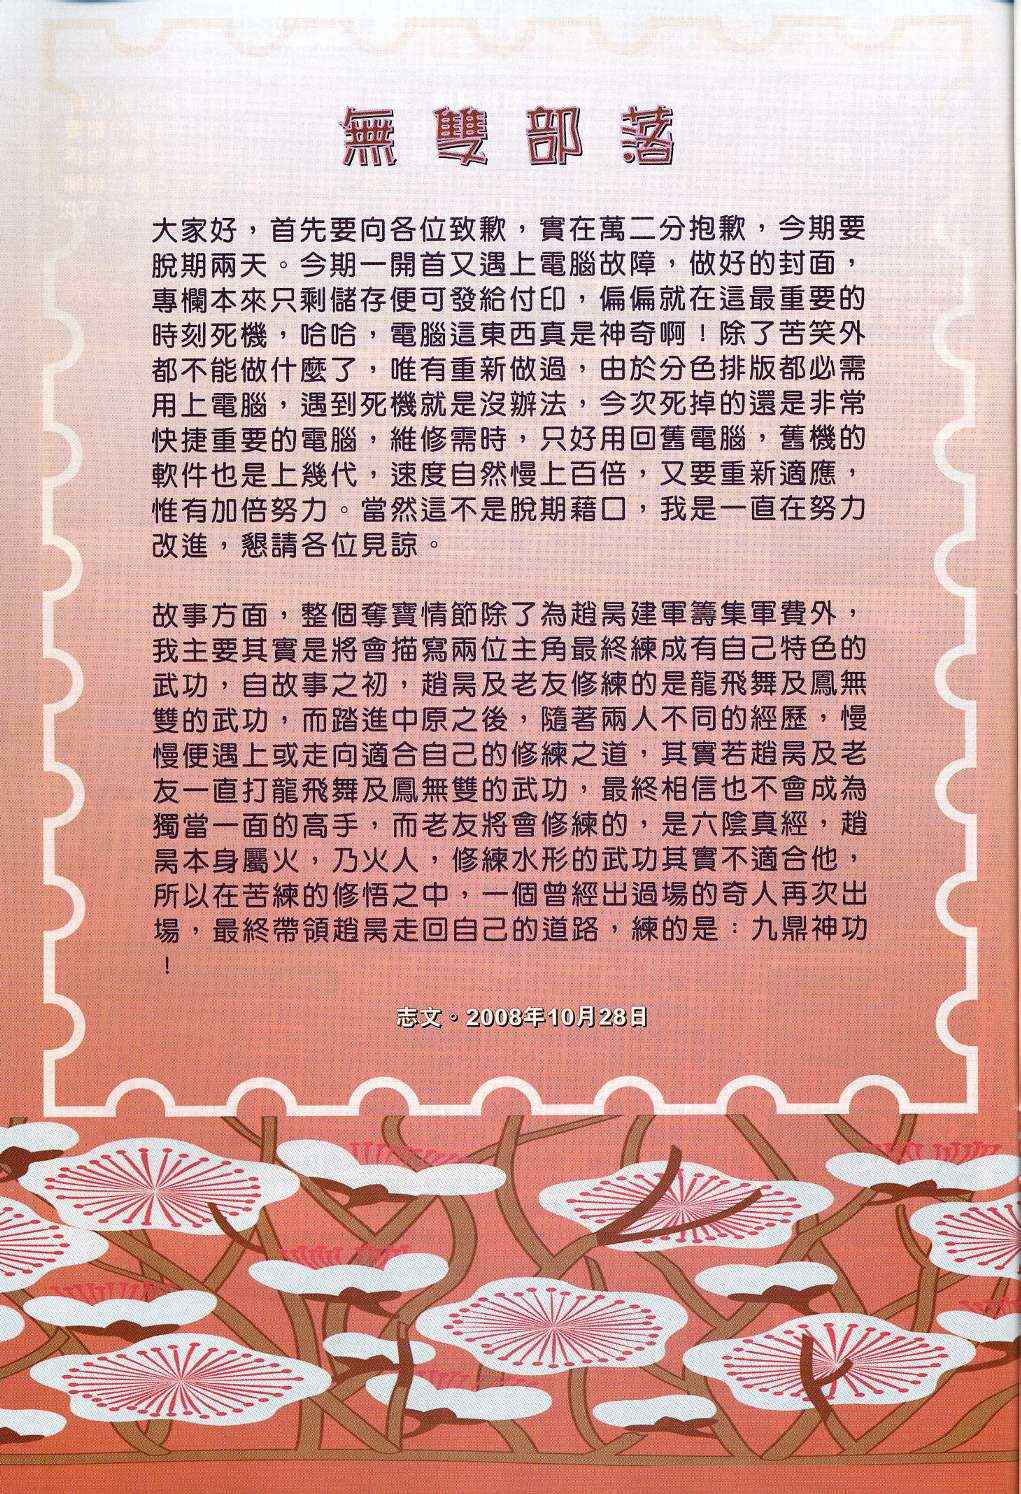 無雙部落
大家好，首先要向各位致歉，實在萬二分抱歉，今期要
脫期兩天。今期一開首又遇上電腦故障，做好的封面，
專欄本來只剩儲存便可發給付印，偏偏就在這最重要的
時刻死機，哈哈，電腦這東西真是神奇啊！除了苦笑外
都不能做什麼了，唯有重新做過，由於分色排版都必需
用上電腦，遇到死機就是沒辦法，今次死掉的還是非常
快捷重要的電腦，維修需時，只好用回舊電腦，舊機的
軟件也是上幾代，速度自然慢上百倍，又要重新適應，
惟有加倍努力。當然這不是脫期藉口，我是一直在努力
改進，懇請各位見諒。
故事方面，整個奪寶情節除了為趙昊建軍籌集軍費外，
我主要其實是將會描寫兩位主角最終練成有自己特色的
武功，自故事之初，趙昊及老友修練的是龍飛舞及鳳無
雙的武功，而踏進中原之後，隨著兩人不同的經歷，慢
慢便遇上或走向適合自己的修練之道，其實若趙昊及老
友一直打龍飛舞及鳳無雙的武功，最終相信也不會成為
獨當一面的高手，而老友將會修練的，是六陰真經，趙
昊本身屬火，乃火人，修練水形的武功其實不適合他，
所以在苦練的修悟之中，一個曾經出過場的奇人再次出
場，最終帶領趙昊走回自己的道路，練的是：九鼎神功
！
志文。2008年10月28日